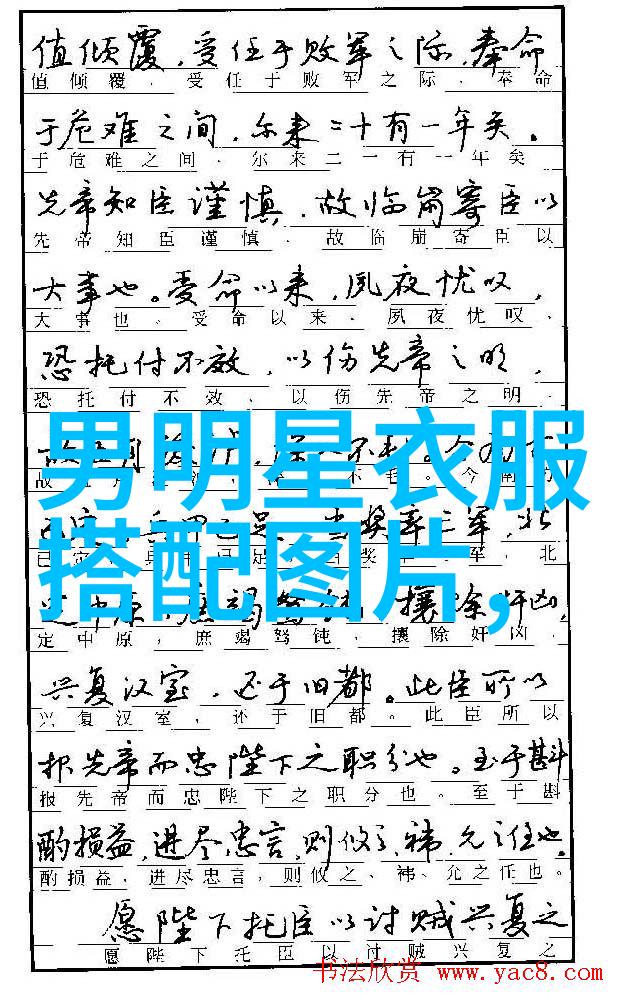 值倾覆，受任于败军之际，奉命
值倾覆，受任于败军之际，奉命
于危难之间，尔来二十有一年矣。
于危难之间，尔来二一有一年矣
先帝知臣谨慎，故临崩寄臣以
先帝知臣谨慎，故临崩寄臣以
大事也。受命以来，夙夜忧叹，
大事也。受命以来，夙夜忧叹，
恐托付不效，以伤先帝之明，
恐托付不效，以伤先帝之明，
男明星衣服
搭配图片,
故 月 不毛。今南方
足 当奖率三军，北
奖 军，北
定中原，庶竭驽钝，攘除奸凶，
定中原，庶竭驽钝，攘除奸凶，
兴复汉室，还于旧都。此臣所以
兴复汉室，还于旧都。此臣所以
报先帝而忠陛下之职分也。至于斟
报先帝而忠陛下之职分也。至于斟
酌损益，进尽忠言，则攸之、祎、允之任也。
酌损益，进尽忠言，则攸之、祎、允之任也。
愿陛下托臣以讨贼兴复之
愿陛下托臣以讨贼兴复之
书法欣赏 www.yac8.com